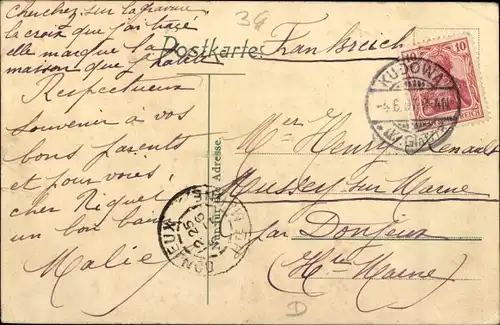 Cherchez sur la gravure
la croix que j'ai tracé
elle marque la
maison que j'habite
Respectueux
souvenir à vos
bons parents
et pour vous,
cher Riquet
un bon bai
Malie
34
Postkarte
Frankreich
10 10
REICH
KUDOWA
Nur für die Adresse.
Henry Renault
Mussey sur Marne
par Donjeux
(Hte Marne)
DONJEUX
D